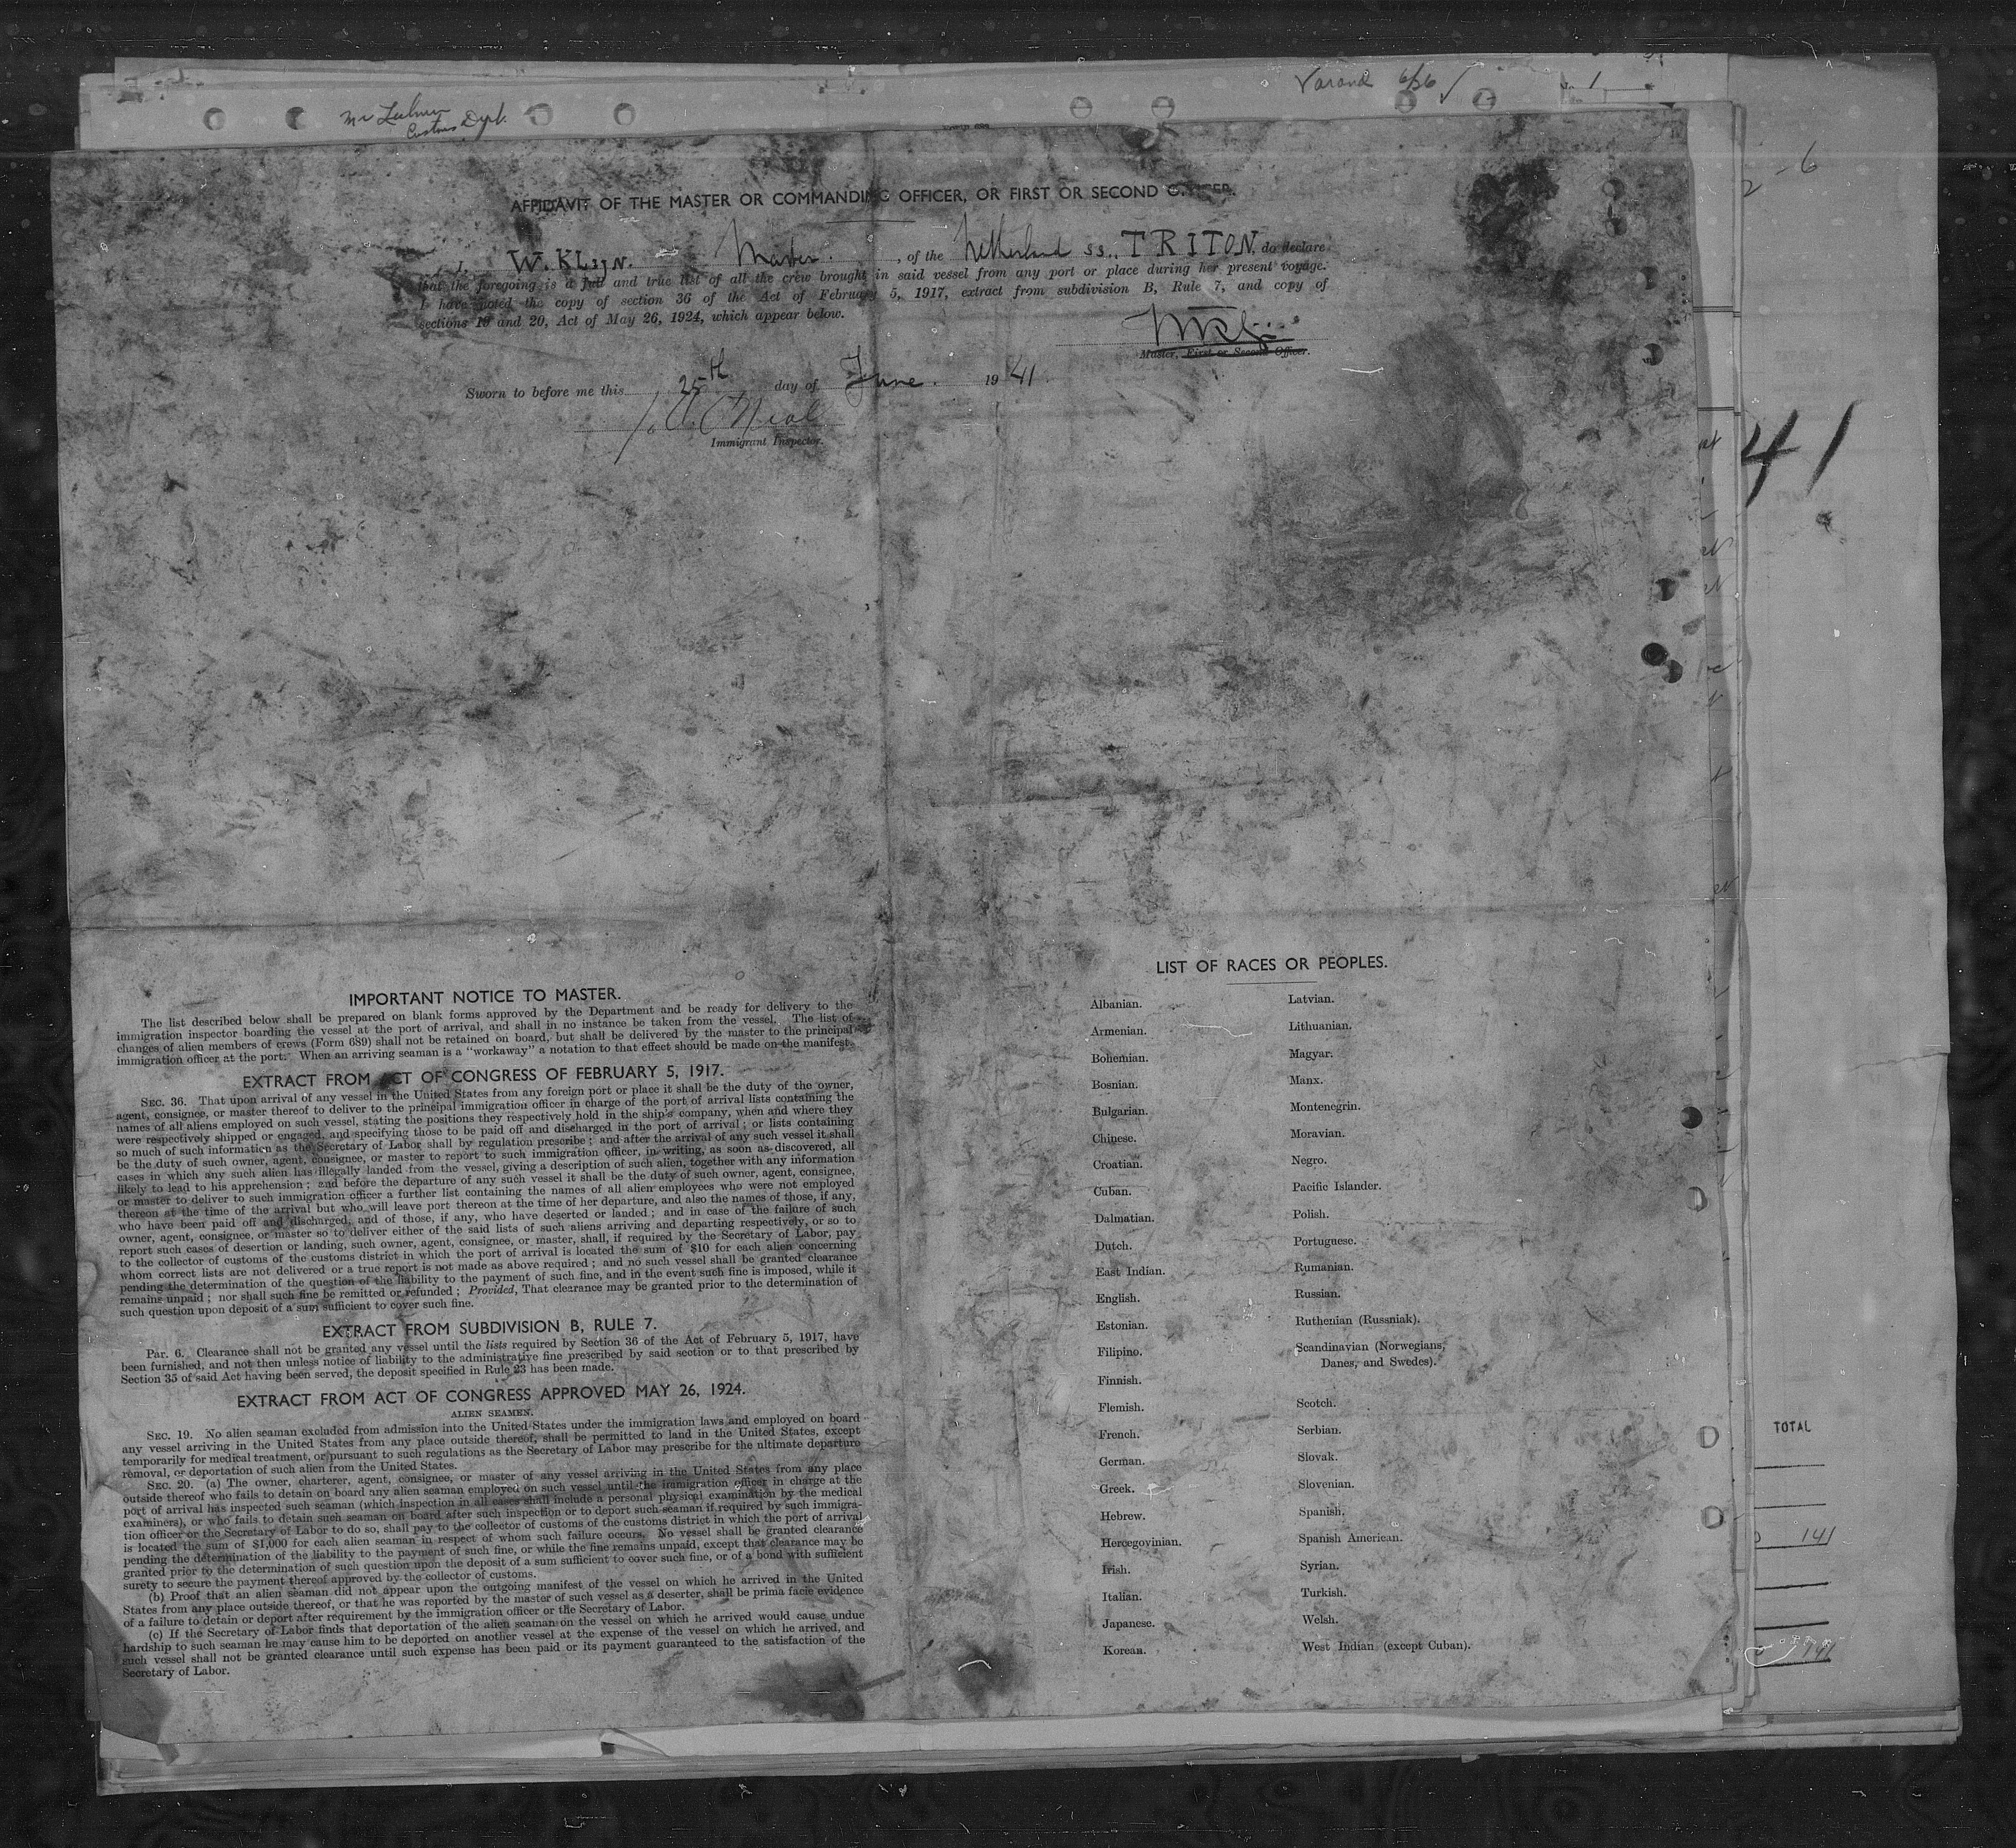 Varand 6/26 ✓
Customs Dept.
AFFIDAVIT OF THE MASTER OR COMMANDING OFFICER, OR FIRST OR SECOND OFFICER.
I, W. KLIJN. Master. , of the Netherland SS. TRITON, do declare
that the foregoing is a full and true list of all the crew brought in said vessel from any port or place during her present voyage.
I have noted the copy of section 36 of the Act of February 5, 1917, extract from subdivision B, Rule 7, and copy of
sections 19 and 20, Act of May 26, 1924, which appear below.
Master, First or Second Officer.
Sworn to before me this 25th day of June. 1941.
Immigrant Inspector.
2-6
41
IMPORTANT NOTICE TO MASTER.
The list described below shall be prepared on blank forms approved by the Department and be ready for delivery to the
immigration inspector boarding the vessel at the port of arrival, and shall in no instance be taken from the vessel. The list of
changes of alien members of crews (Form 689) shall not be retained on board, but shall be delivered by the master to the principal
immigration officer at the port. When an arriving seaman is a "workaway" a notation to that effect should be made on the manifest.
EXTRACT FROM ACT OF CONGRESS OF FEBRUARY 5, 1917.
SEC. 36. That upon arrival of any vessel in the United States from any foreign port or place it shall be the duty of the owner,
agent, consignee, or master thereof to deliver to the principal immigration officer in charge of the port of arrival lists containing the
names of all aliens employed on such vessel, stating the positions they respectively hold in the ship's company, when and where they
were respectively shipped or engaged, and specifying those to be paid off and discharged in the port of arrival; or lists containing
so much of such information as the Secretary of Labor shall by regulation prescribe; and after the arrival of any such vessel it shall
be the duty of such owner, agent, consignee, or master to report to such immigration officer, in writing, as soon as discovered, all
cases in which any such alien has illegally landed from the vessel, giving a description of such alien, together with any information
likely to lead to his apprehension; and before the departure of any such vessel it shall be the duty of such owner, agent, consignee,
or master to deliver to such immigration officer a further list containing the names of all alien employees who were not employed
thereon at the time of the arrival but who will leave port thereon at the time of her departure, and also the names of those, if any,
who have been paid off and discharged, and of those, if any, who have deserted or landed; and in case of the failure of such
owner, agent, consignee, or master so to deliver either of the said lists of such aliens arriving and departing respectively, or so to
report such cases of desertion or landing, such owner, agent, consignee, or master, shall, if required by the Secretary of Labor, pay
to the collector of customs of the customs district in which the port of arrival is located the sum of $10 for each alien concerning
whom correct lists are not delivered or a true report is not made as above required; and no such vessel shall be granted clearance
pending the determination of the question of the liability to the payment of such fine, and in the event such fine is imposed, while it
remains unpaid; nor shall such fine be remitted or refunded; Provided, That clearance may be granted prior to the determination of
such question upon deposit of a sum sufficient to cover such fine.
EXTRACT FROM SUBDIVISION B, RULE 7.
Par. 6. Clearance shall not be granted any vessel until the lists required by Section 36 of the Act of February 5, 1917, have
been furnished, and not then unless notice of liability to the administrative fine prescribed by said section or to that prescribed by
Section 35 of said Act having been served, the deposit specified in Rule 23 has been made.
EXTRACT FROM ACT OF CONGRESS APPROVED MAY 26, 1924.
ALIEN SEAMEN.
SEC. 19. No alien seaman excluded from admission into the United States under the immigration laws and employed on board
any vessel arriving in the United States from any place outside thereof, shall be permitted to land in the United States, except
temporarily for medical treatment, or pursuant to such regulations as the Secretary of Labor may prescribe for the ultimate departure
removal, or deportation of such alien from the United States.
SEC. 20. (a) The owner, charterer, agent, consignee, or master of any vessel arriving in the United States from any place
outside thereof who fails to detain on board any alien seaman employed on such vessel until the immigration officer in charge at the
port of arrival has inspected such seaman (which inspection in all cases shall include a personal physical examination by the medical
examiners), or who fails to detain such seaman on board after such inspection or to deport such seaman if required by such immigra-
tion officer or the Secretary of Labor to do so, shall pay to the collector of customs of the customs district in which the port of arrival
is located the sum of $1,000 for each alien seaman in respect of whom such failure occurs. No vessel shall be granted clearance
pending the determination of the liability to the payment of such fine, or while the fine remains unpaid, except that clearance may be
granted prior to the determination of such question upon the deposit of a sum sufficient to cover such fine, or of a bond with sufficient
surety to secure the payment thereof approved by the collector of customs.
(b) Proof that an alien seaman did not appear upon the outgoing manifest of the vessel on which he arrived in the United
States from any place outside thereof, or that he was reported by the master of such vessel as a deserter, shall be prima facie evidence
of a failure to detain or deport after requirement by the immigration officer or the Secretary of Labor.
(c) If the Secretary of Labor finds that deportation of the alien seaman on the vessel on which he arrived would cause undue
hardship to such seaman he may cause him to be deported on another vessel at the expense of the vessel on which he arrived, and
such vessel shall not be granted clearance until such expense has been paid or its payment guaranteed to the satisfaction of the
Secretary of Labor.
LIST OF RACES OR PEOPLES.
Albanian.
Armenian.
Bohemian.
Bosnian.
Bulgarian.
Chinese.
Croatian.
Cuban.
Dalmatian.
Dutch.
East Indian.
English.
Estonian.
Filipino.
Finnish.
Flemish.
French.
German.
Greek.
Hebrew.
Hercegovinian.
Irish.
Italian.
Japanese.
Korean.
Latvian.
Lithuanian.
Magyar.
Manx.
Montenegrin.
Moravian.
Negro.
Pacific Islander.
Polish.
Portuguese.
Rumanian.
Russian.
Ruthenian (Russniak).
Scandinavian (Norwegians,
Danes, and Swedes).
Scotch.
Serbian.
Slovak.
Slovenian.
Spanish.
Spanish American.
Syrian.
Turkish.
Welsh.
West Indian (except Cuban).
TOTAL
141